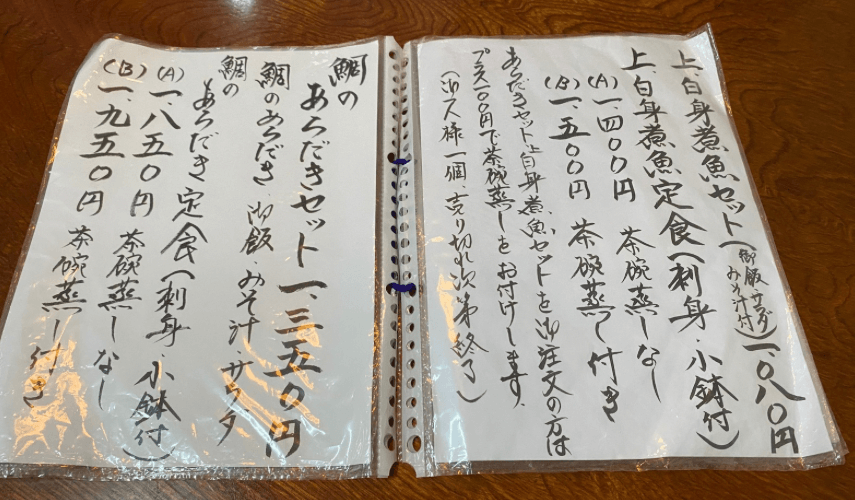 上、白身煮魚セット(御飯 サラダ みそ汁付)一、〇八〇円
上、白身煮魚定食(刺身・小鉢付)
(A)一、四〇〇円 茶碗蒸しなし
(B)一、五〇〇円 茶碗蒸し付き
あらだきセット、上白身煮魚セットを御注文の方は
プラス一〇〇円で茶碗蒸しをお付けします。
(御一人様一個、売り切れ次第終了)
鯛のあらだきセット 一、三五〇円
鯛のあらだき、御飯・みそ汁・サラダ
鯛のあらだき定食(刺身・小鉢付)
(A)一、八五〇円 茶碗蒸しなし
(B)一、九五〇円 茶碗蒸し付き